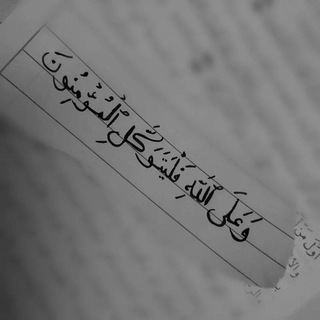 وَعَلَى ٱللَّهِ فَلْيَتَوَكَّلِ ٱلْمُؤْمِنُونَ